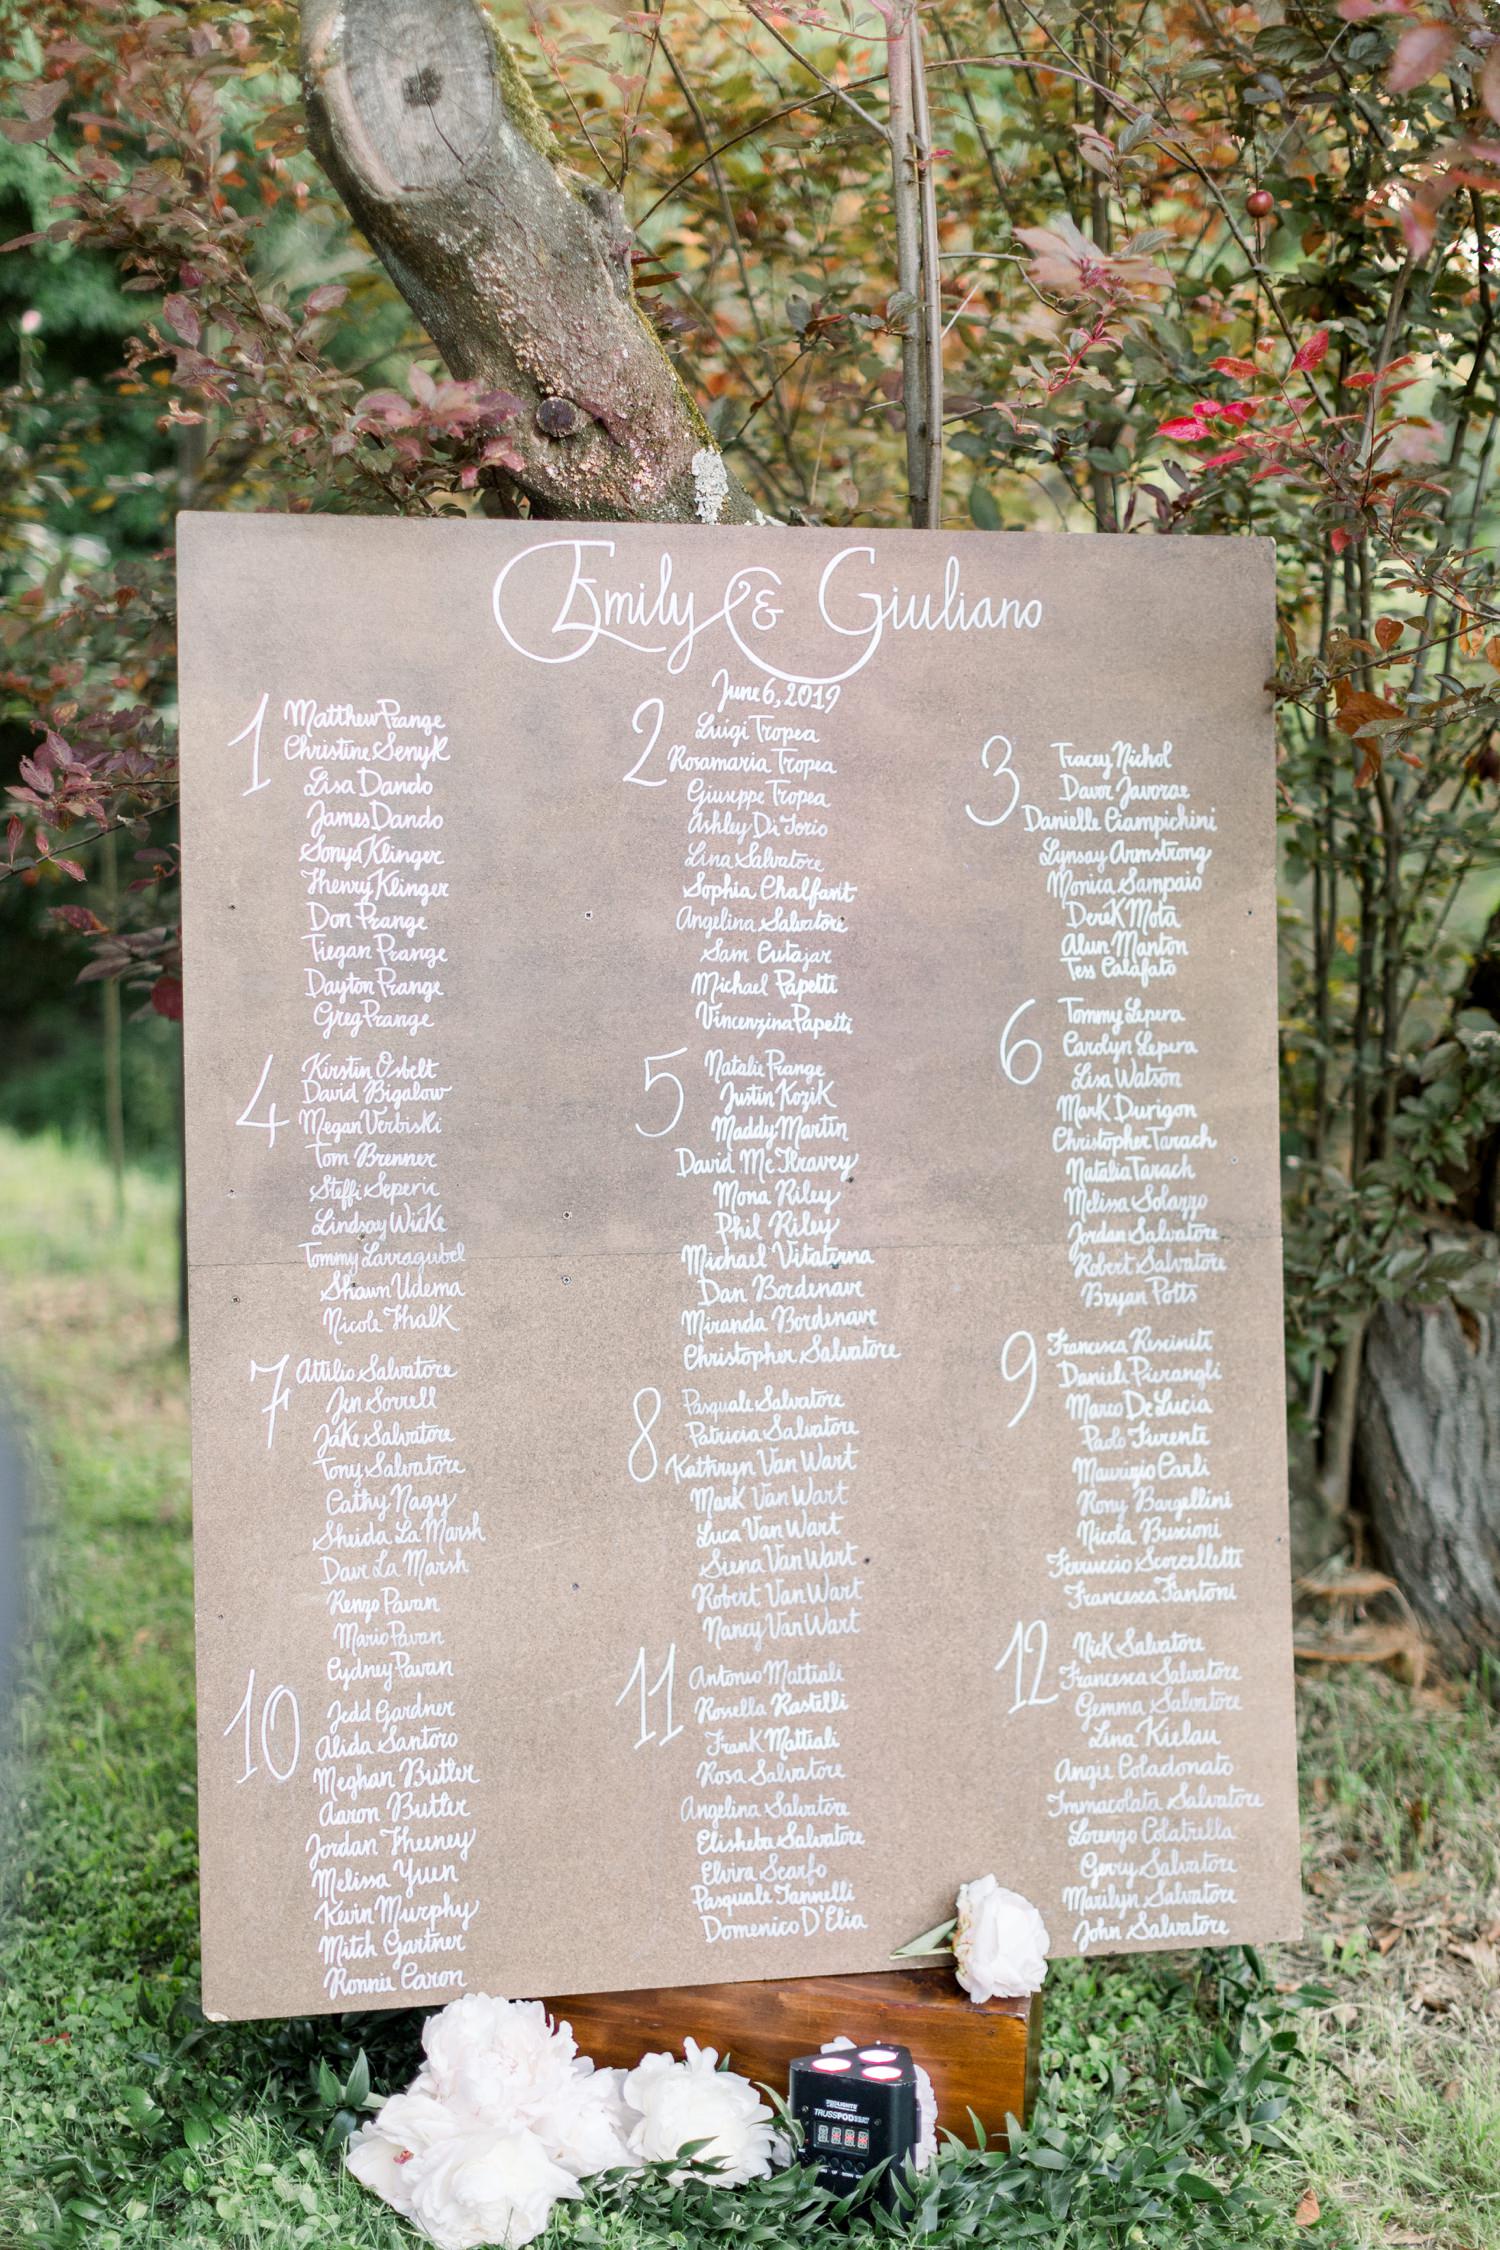 Emily & Giuliano
June 6, 2019
1
Matthew Prange
Christine Senyk
Lisa Dando
James Dando
Sonya Klinger
Henry Klinger
Don Prange
Tiegan Prange
Dayton Prange
Greg Prange
2
Luigi Tropea
Rosamaria Tropea
Giuseppe Tropea
Ashley Di Iorio
Lina Salvatore
Sophia Chalfant
Angelina Salvatore
Sam Cutajar
Michael Papetti
Vincenzina Papetti
3
Tracey Nichol
Davor Javorac
Danielle Ciampichini
Lynsay Armstrong
Monica Sampaio
Derek Mota
Alun Manton
Tess Calafato
4
Kirstin Osbelt
David Bigalow
Megan Verbiski
Tom Brenner
Steffi Seperic
Lindsay Wicke
Tommy Larragubel
Shawn Udema
Nicole Fhalk
5
Natalie Prange
Justin Kozik
Maddy Martin
David McKravey
Mona Riley
Phil Riley
Michael Vitaterna
Dan Bordenave
Miranda Bordenave
Christopher Salvatore
6
Tommy Lepera
Carolyn Lepera
Lisa Watson
Mark Durigon
Christopher Tarach
Natalia Tarach
Melissa Solazzo
Jordan Salvatore
Robert Salvatore
Bryan Potts
7
Attilio Salvatore
Jen Sorrell
Jake Salvatore
Tony Salvatore
Cathy Nagy
Sheida La Marsh
Dave La Marsh
Renzo Pavan
Mario Pavan
Cydney Pavan
8
Pasquale Salvatore
Patricia Salvatore
Kathryn Van Wart
Mark Van Wart
Luca Van Wart
Siena Van Wart
Robert Van Wart
Nancy Van Wart
9
Francesca Resciniti
Daniele Pierangli
Marco De Lucia
Paolo Furente
Maurizio Carli
Rony Bargellini
Nicola Buscioni
Ferruccio Scorcelletti
Francesca Fantoni
10
Jedd Gardner
Alida Santoro
Meghan Butler
Aaron Butler
Jordan Feeney
Melissa Yuen
Kevin Murphy
Mitch Gartner
Ronnie Caron
11
Antonio Mattiali
Rossella Rastelli
Frank Mattiali
Rosa Salvatore
Angelina Salvatore
Elisheba Salvatore
Elvira Scarfo
Pasquale Iannelli
Domenico D'Elia
12
Nick Salvatore
Francesca Salvatore
Gemma Salvatore
Lina Kielau
Angie Coladonato
Immacolata Salvatore
Lorenzo Colatrella
Gerry Salvatore
Marilyn Salvatore
John Salvatore
TRUSSPOD